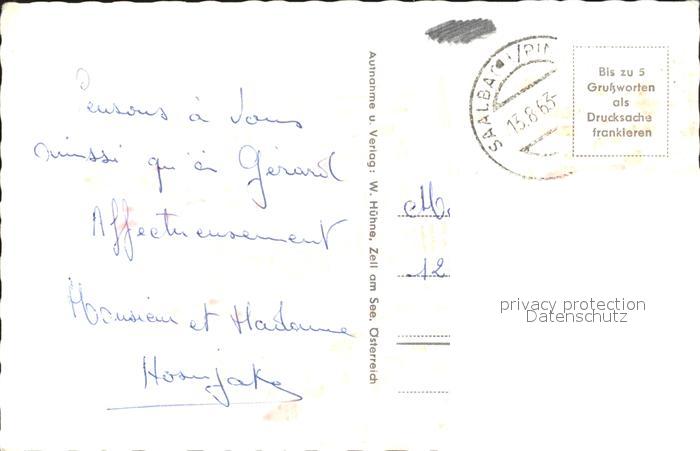 Pensons à vous
aussi qu'à Gérard
Affectueusement
Monsieur et Madame
Aufnahme u. Verlag: W. Hühne, Zell am See, Österreich
SAALBACH/PIN
13.8.63
Bis zu 5
Grußworten
als
Drucksache
frankieren
M.
12
privacy protection
Datenschutz